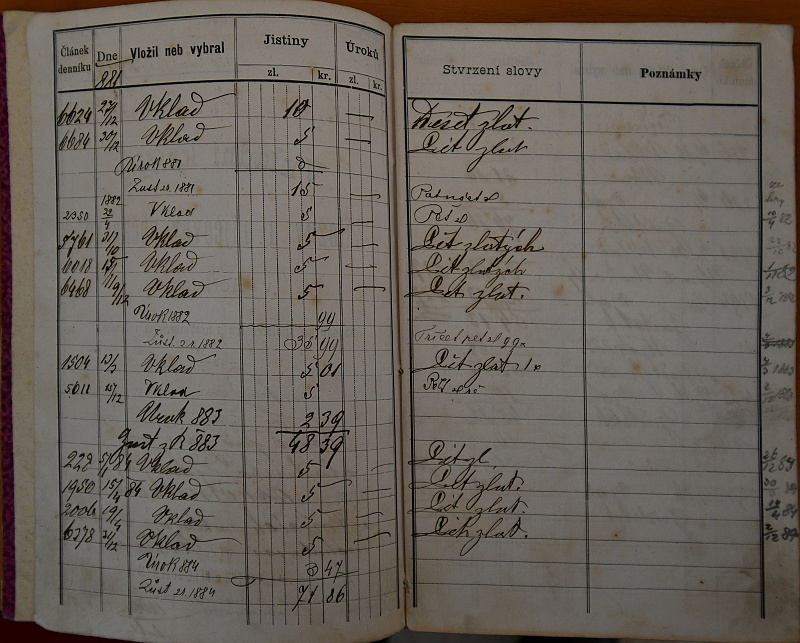 Článek denníku Dne Vložil neb vybral Jistiny Úroků
zl. kr. zl. kr.
Stvrzení slovy Poznámky
881
6624 22/12 Vklad 10 — Deset zlat.
6684 30/12 Vklad 5 — Pět zlat
Úrok 881
Zůst. r. 1881 15 —
1882
2350 22/4 Vklad 5 — Pět zl
5761 31/10 Vklad 5 — Pět zlatých
6018 Vklad 5 — Pět zlatých
6468 9/12 Vklad 5 — Pět zlat.
Úrok 1882 99
Zůst. r. 1882 35 99
1504 Vklad 5 01 Pět zlat 1 k
5011 15/12 Vklad 5
Úrok 883 2 39
Zůst z r. 883 48 39
228 84 Vklad 5 Pět zl
1950 15/4 84 Vklad 5 — Pět zlat.
2006 19/4 Vklad 5 — Pět zlat.
6378 Vklad 5 — Pět zlat.
Úrok 884 3 47
Zůst. r. 1884 71 86